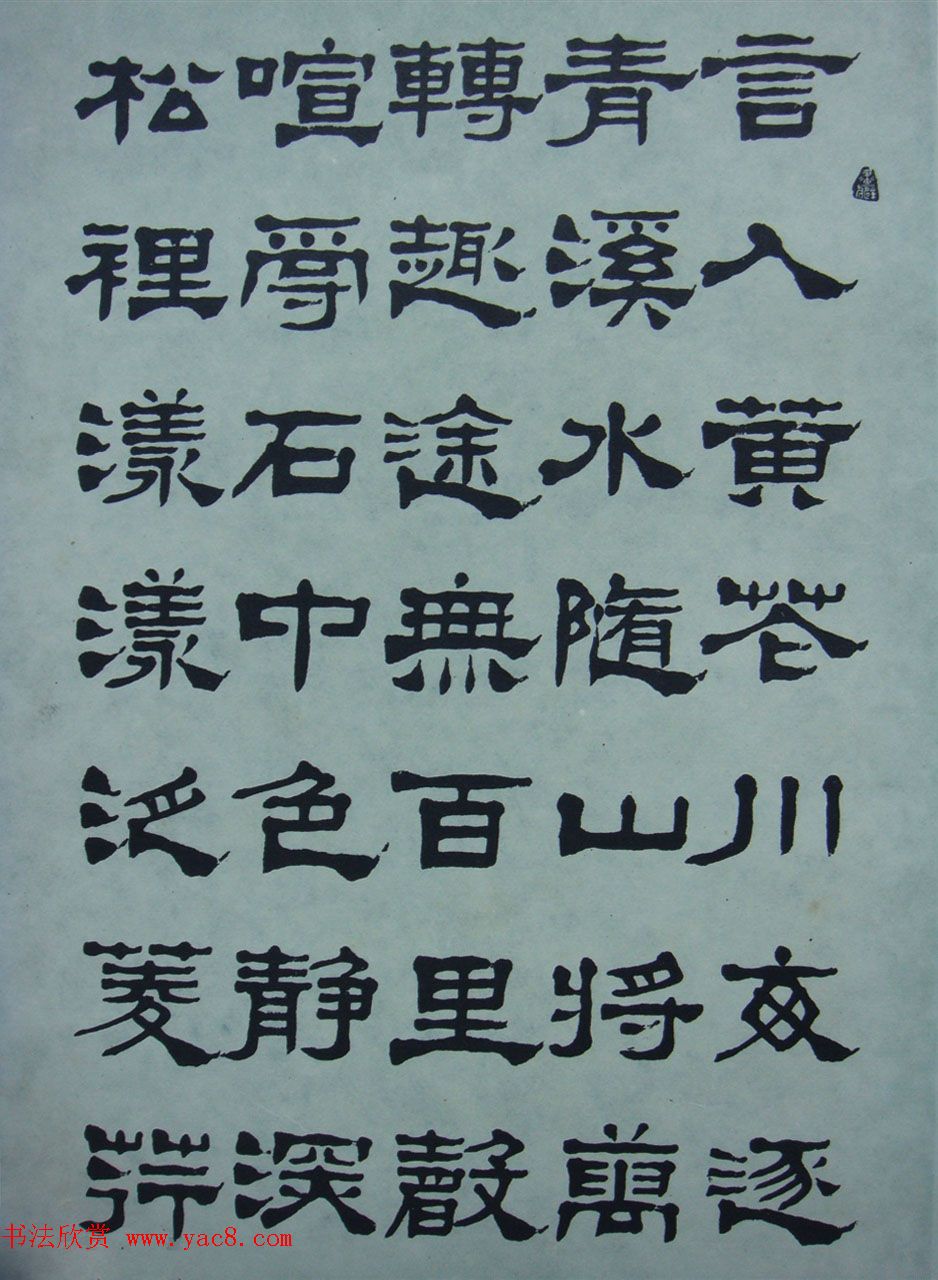 言入黄花川每逐
青溪水隨山将萬
轉趣途無百里聲
喧𤔔石中色静深
松裡漾漾泛菱荇
书法欣赏 www.yac8.com